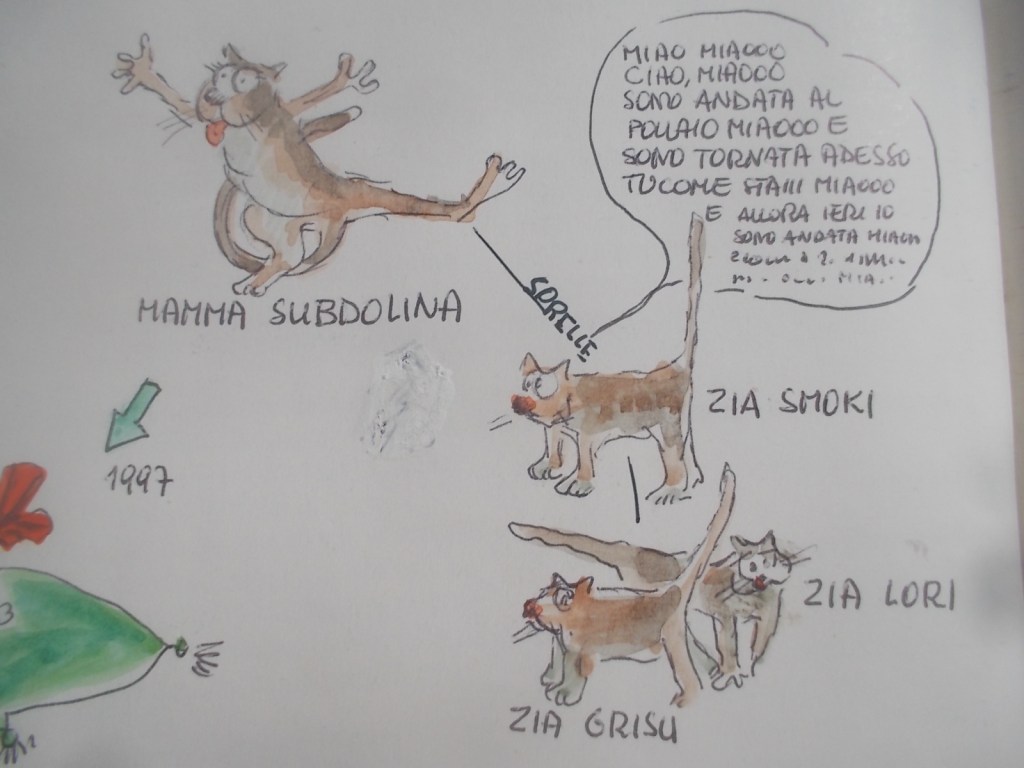 MIAO MIAOOO
CIAO, MIAOOO
SONO ANDATA AL
POLLAIO MIAOOO E
SONO TORNATA ADESSO
TU COME STAIII MIAOOO
E ALLORA IERI IO
SONO ANDATA
MIA..
MAMMA SUBDOLINA
SORELLE
ZIA SMOKI
1997
ZIA LORI
3
ZIA GRISU